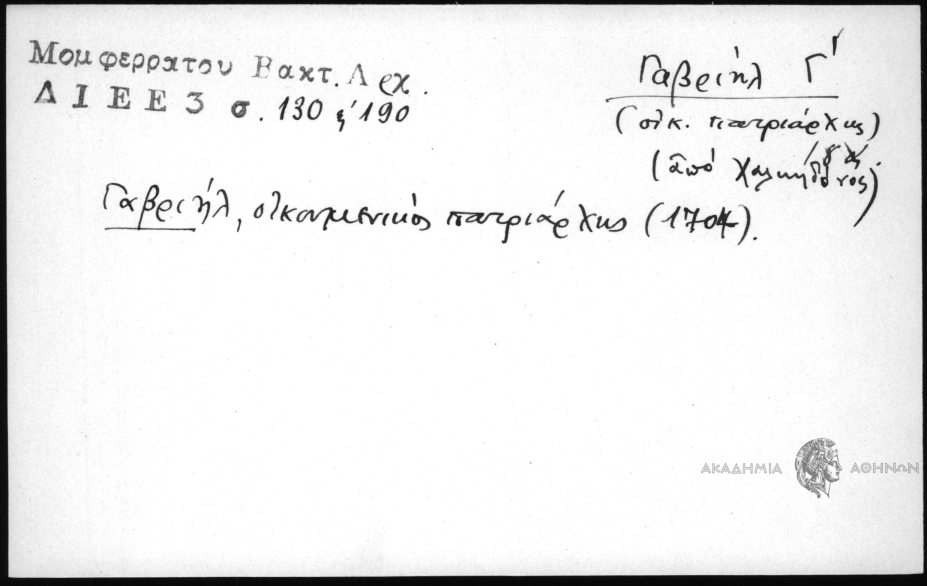 Μομφερρατου Βακτ. Αρχ.
Δ Ι Ε Ε 3 σ. 130 ϛ 190
Γαβριήλ Γ'
(οἰκ. πατριάρχης)
(ἀπό Χαλκηδόνος)
Γαβριήλ, οἰκουμενικός πατριάρχης (1704).
ΑΚΑΔΗΜΙΑ ΑΘΗΝΩΝ